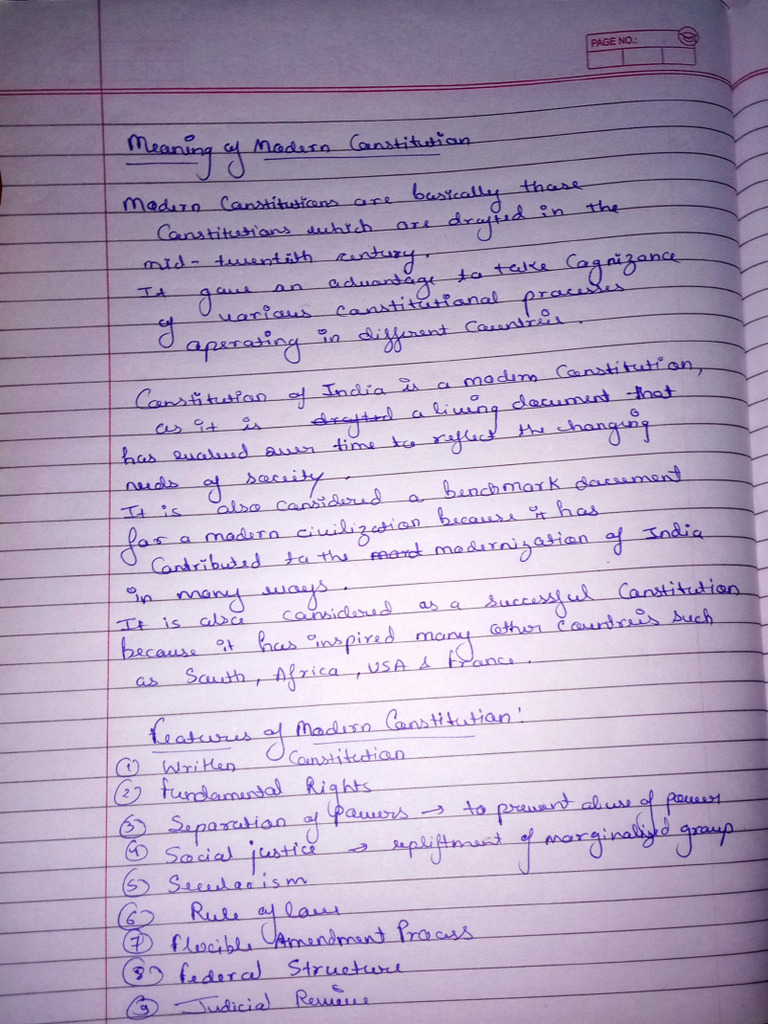 PAGE NO.:
Meaning of Modern Constitution
Modern Constitutions are basically those
Constitutions which are drafted in the
mid-twentith century.
It gave an advantage to take Cognizance
of various constitutional processes
operating in different Countreis.
Constitution of India is a modern Constitution,
as it is drafted a living document that
has evalued over time to reflect the changing
needs of soceity.
It is also considered a benchmark document
for a modern civilization because it has
Contributed to the mord modernization of India
in many ways.
It is also considered as a successful Constitution
because it has inspired many other Countreis such
as South, Africa, USA & France.
Features of Modern Constitution:
① Written Constitution
② Fundamental Rights
③ Separation of Powers → to prevent abuse of power
④ Social justice → upliftment of marginalized group
⑤ Secularism
⑥ Rule of law
⑦ Flexible Amendment Process
⑧ Federal Structure
⑨ Judicial Review